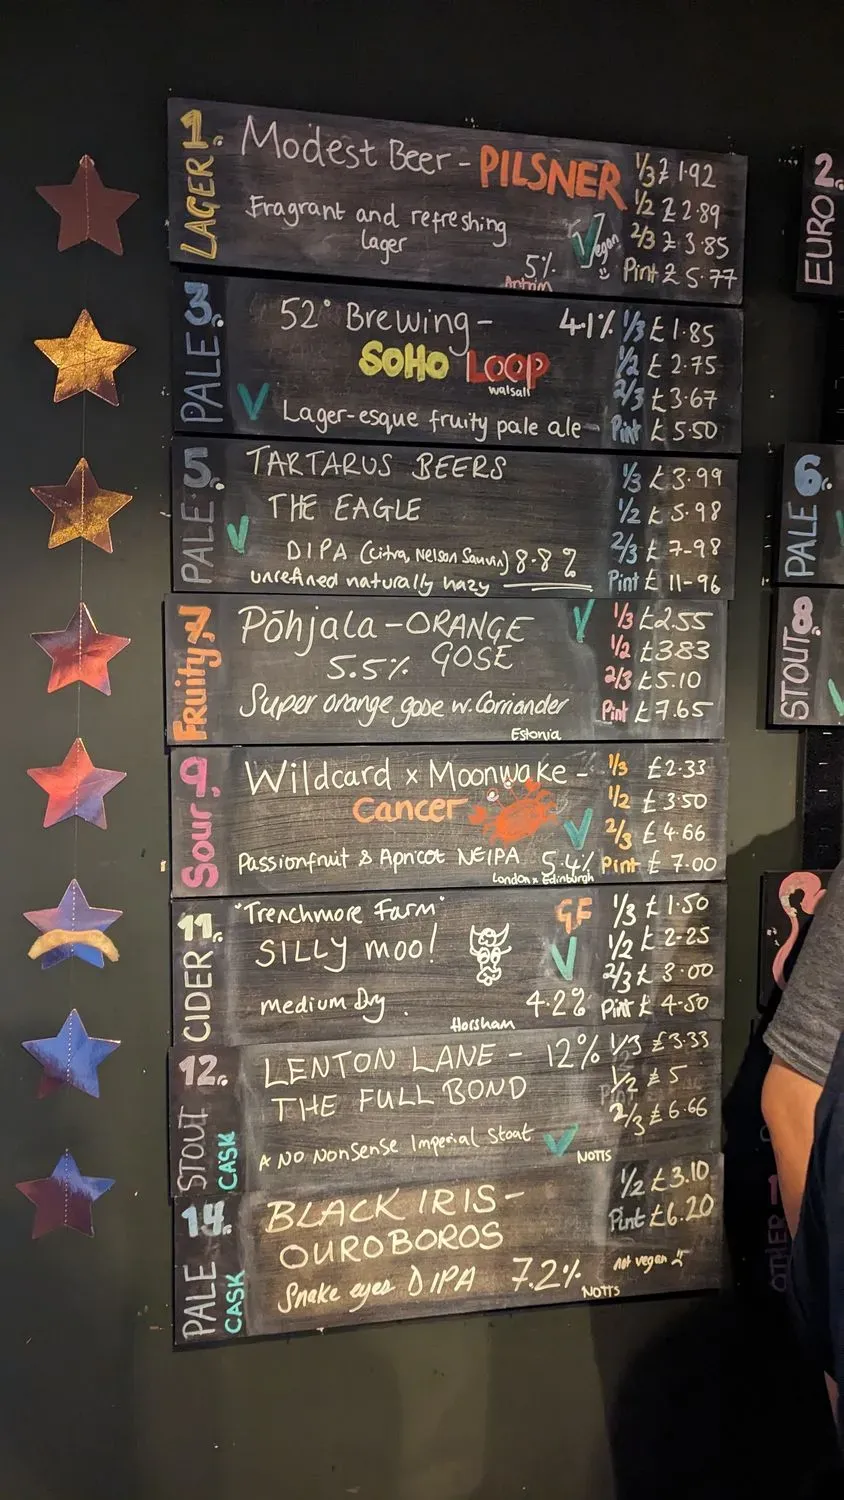 1. LAGER
Modest Beer - PILSNER
Fragrant and refreshing
lager
5%
Antrim
Vegan
1/3 £ 1.92
1/2 £ 2.89
2/3 £ 3.85
Pint £ 5.77
3. PALE
52° Brewing - 4.1%
SOHO LOOP
Walsall
Lager-esque fruity pale ale
1/3 £ 1.85
1/2 £ 2.75
2/3 £ 3.67
Pint £ 5.50
5. PALE
TARTARUS BEERS
THE EAGLE
DIPA (Citra, Nelson Sauvin) 8.8%
unrefined naturally hazy
1/3 £3.99
1/2 £ 5.98
2/3 £ 7-98
Pint £ 11-96
7. Fruity
Põhjala - ORANGE
5.5% GOSE
Super orange gose w. Corriander
Estonia
1/3 £2.55
1/2 £3.83
2/3 £5.10
Pint £7.65
9. Sour
Wildcard x Moonwake -
Cancer
Passionfruit & Apricot NEIPA 5.4%
London x Edinburgh
1/3 £2.33
1/2 £3.50
2/3 £4.66
Pint £ 7.00
11. CIDER
"Trenchmore Farm" GF
SILLY MOO!
medium Dry. 4.2%
Horsham
1/3 £ 1.50
1/2 £ 2-25
2/3 £ 3.00
Pint £ 4-50
12. STOUT CASK
LENTON LANE - 12%
THE FULL BOND
A NO NONSENSE Imperial Stout
NOTTS
1/3 £3.33
1/2 £ 5
2/3 £6.66
14. PALE CASK
BLACK IRIS -
OUROBOROS
Snake eyes DIPA 7.2%
NOTTS
1/2 £3.10
Pint £6.20
not vegan
2. EURO
6. PALE
8. STOUT
OTHER